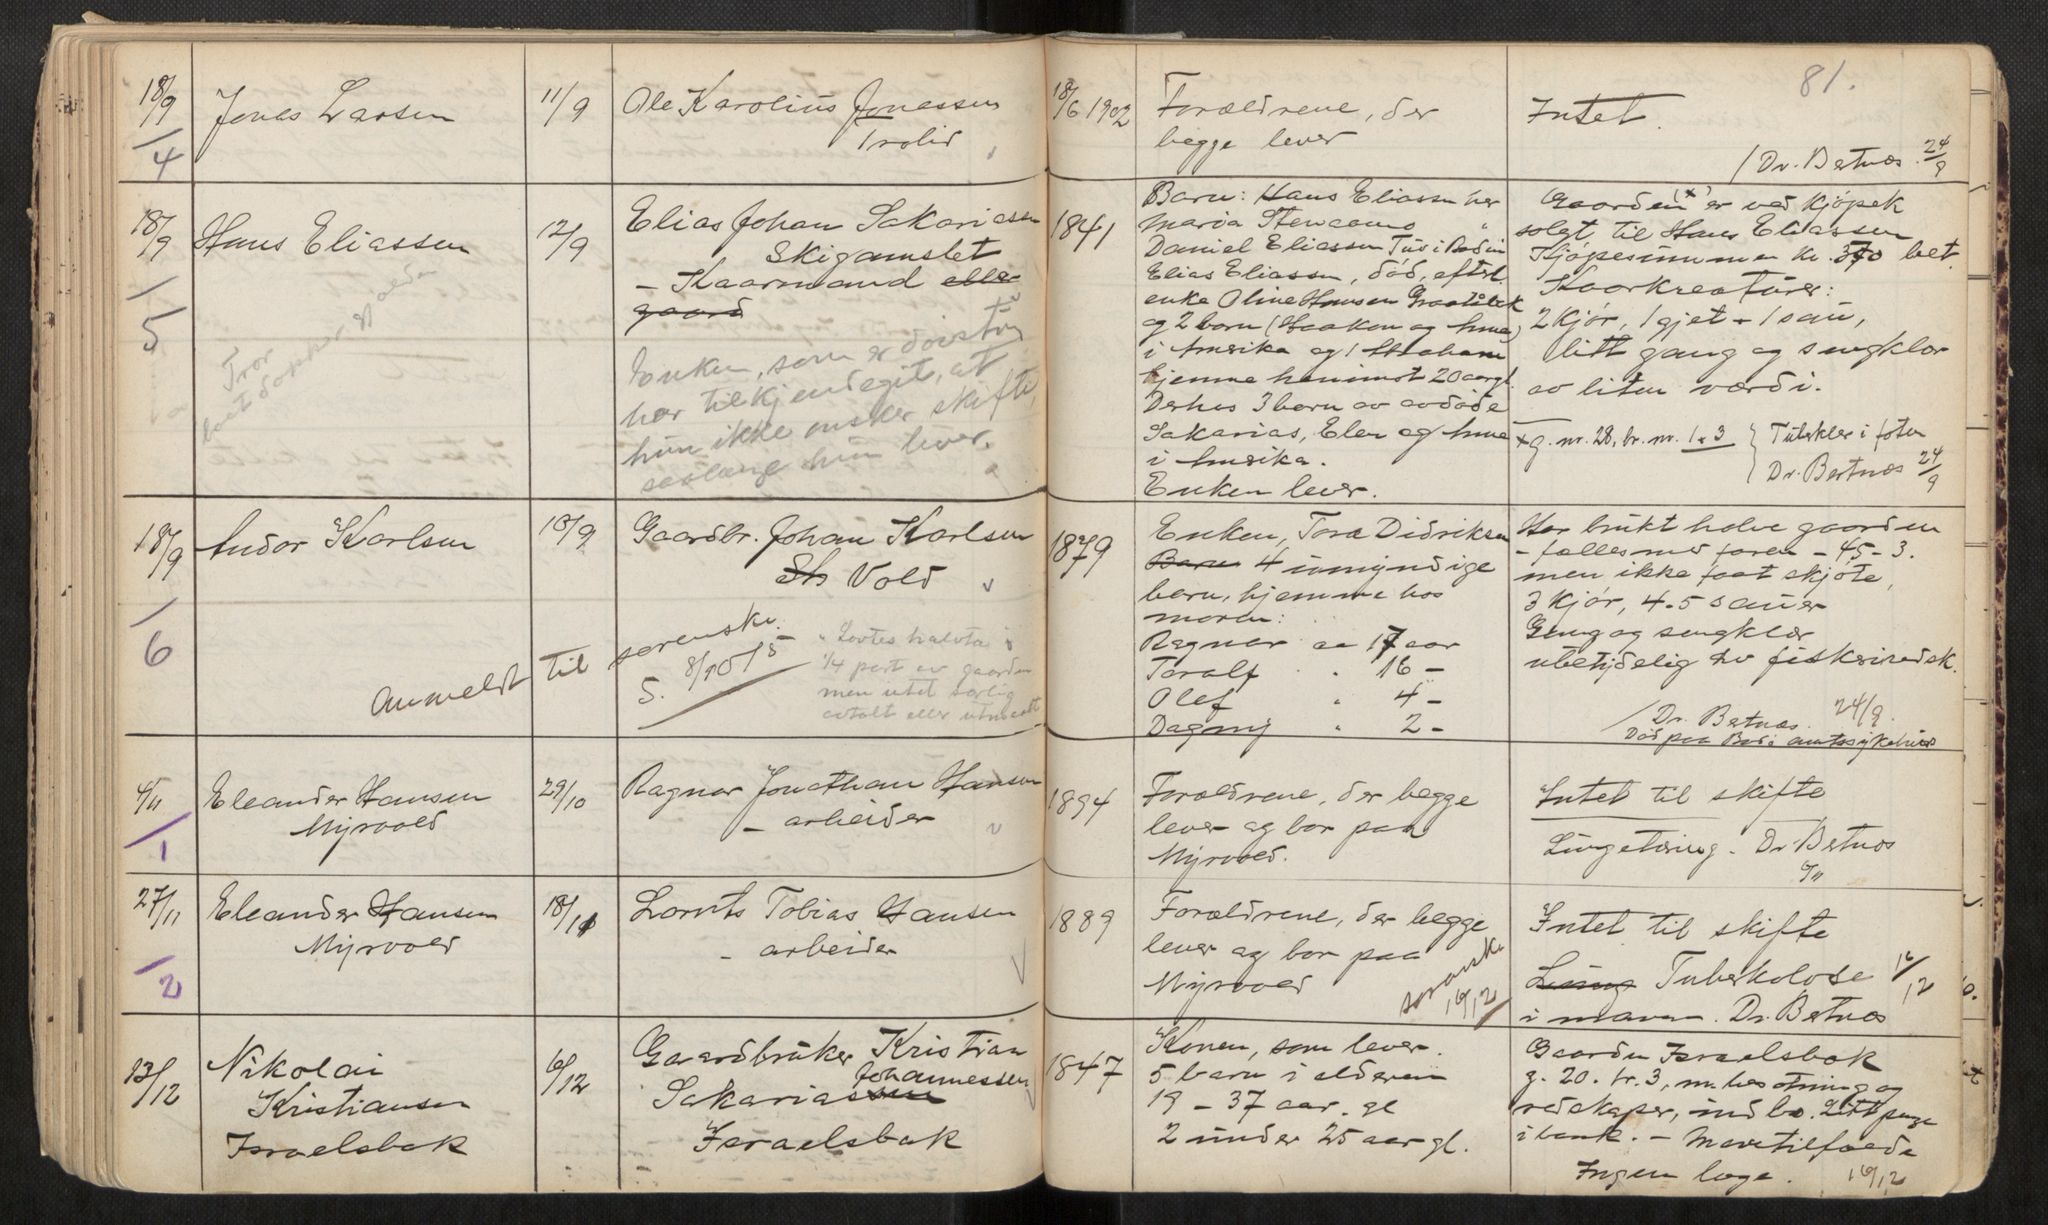 81.
18/9
Jonas Larsen
11/9
Ole Karolius Jonassen
18/6 1902
Forældrene, der
begge lever
Intet.
/ Dr. Bertnæs 24/9
/4
18/9
Hans Eliassen
12/9
Elias Johan Sakariassen
Skigamslet
- Kaarmand
gaard
Enken, som er døvstum
har tilkjendegit, at
hun ikke ønsker skifte,
saalænge hun lever.
Tror
/5
1841
Barn: Hans Eliassen her
Maria "
Daniel Eliassen
Elias Eliassen, død, efterl.
enke Oline Hansen
og 2 barn (Haakon og
i Amerika og 1
hjemme henimot 20 aar gl.
Desher 3 barn av avdøde
Sakarias, Elen og
i Amerika.
Enken lever.
Gaarden x) er ved kjøpek
solgt til Hans Eliassen
Kjøpesummen kr. 370 bet.
Kaarkreaturer:
2 kjør, 1 gjet - 1 sau,
litt gang og sengklær
av liten værdi.
x g. nr. 28, br. nr. 1 & 3
Tuberkler i foten
Dr. Bertnæs 24/9
18/9
Andor Karlsen
10/9
Gaardbr. Johan Karlsen
Vold
/6
anmeldt til sorenskr.
8/10 15
S.
1/4 part av gaarden
men intet særlig
avtalt eller
1879
Enken, Tora Didriksen
Barn 4 umyndige
barn, hjemme hos
moren:
Ragnar aa 17 aar
Toralf " 16 -
Olef " 4 -
Dagny " 2 -
Har brukt halve gaarden
- fælles med faren - 45-3.
men ikke faat skjøte,
3 kjør, 4-5 sauer
Gang og sengklær
ubetydelig av fiskeredsk.
/ Dr. Bertnæs. 24/9.
Død paa Bodø amtssykehus
4/11
Eleander Hansen
Myrvold
29/10
Ragnar Jonathan Hansen
- arbeider
/1
1894
Forældrene, der begge
lever og bor paa
Myrvold.
Intet til skifte
Lungetæring. Dr. Bertnæs
27/11
Eleander Hansen
Myrvold
18/11
Lornts Tobias Hansen
- arbeider
/2
1889
Forældrene, der begge
lever og bor paa
Myrvold
sorenskr.
16/12
Intet til skifte
Lung Tuberkolose 16/12
i maven. Dr. Bertnæs
13/12
Nikolai
Kristiansen
Israelsbak
6/12
Gaardbruker Kristian
Johannessen
Sakariassen
Israelsbak
1847
Konen, som lever.
5 barn i alderen
19 - 37 aar. gl
2 under 25 aar gl.
Gaarden Israelsbak
g. 20. br. 3, m. besætning og
redskaper, indbo. Litt penge
i bank. - Mavetilfælde
Ingen læge. 16/12